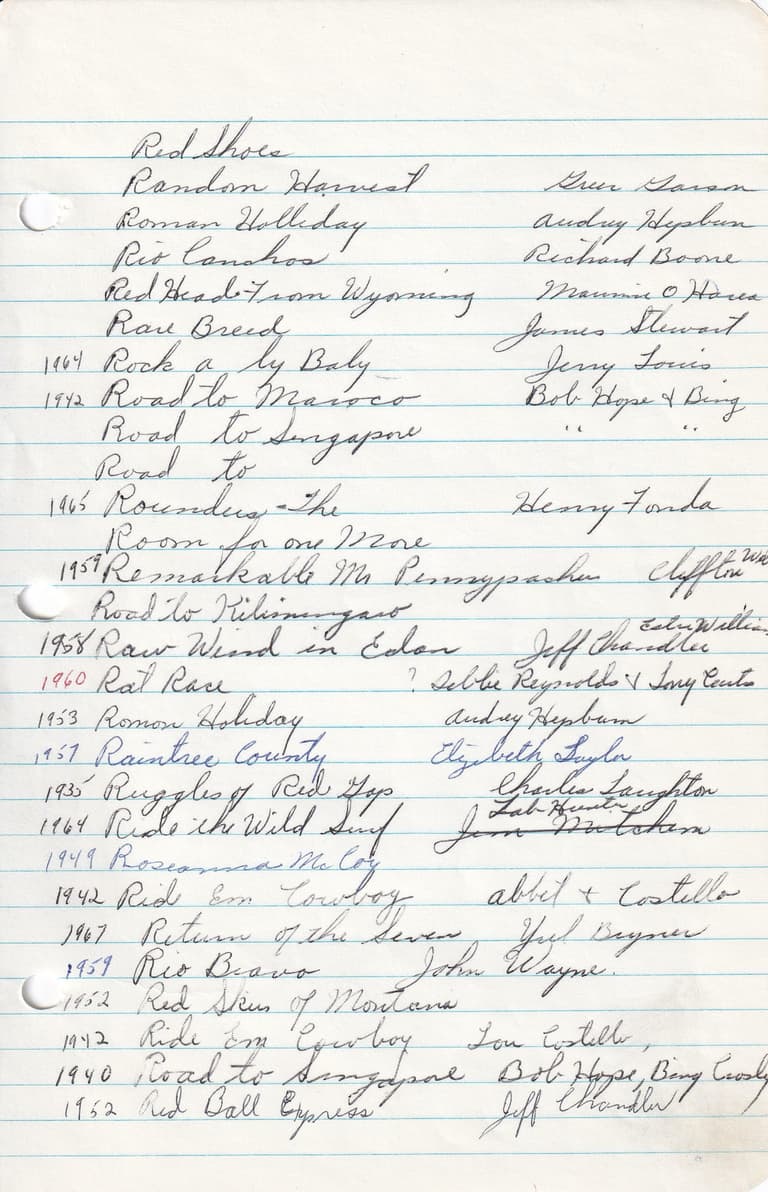 Red Shoes
Random Harvest Greer Garson
Roman Holliday Audrey Hepburn
Rio Canchos Richard Boone
Red Head From Wyoming Maurine O Harea
Rare Breed James Stewart
1964 Rock a by Baby Jerry Louis
1942 Road to Maroco Bob Hope & Bing
Road to Singapore " "
Road to
1965 Rounders - The Henry Fonda
Room for one More
1959 Remarkable Mr Pennypasher Cliffton Web
Road to Kilimingaro
1958 Raw Wind in Edan Jeff Chandler Ester William
1960 Rat Race ? Debbie Reynolds & Tony Curts
1953 Roman Holiday Audrey Hepburn
1957 Raintree County Elizbeth Taylor
1935 Ruggles of Red Gap Charles Laughton
1964 Ride the Wild Surf Tab Hunter Jim Mitchem
1949 Roseanna McCoy
1942 Rid Em Cowboy abbit & Costello
1967 Return of the Seven Yul Bryner
1959 Rio Bravo John Wayne.
1952 Red Skies of Montana
1942 Ride Em Cowboy Lou Costello,
1940 Road to Singapore Bob Hope, Bing Crosby
1952 Red Ball Express Jeff Chandler